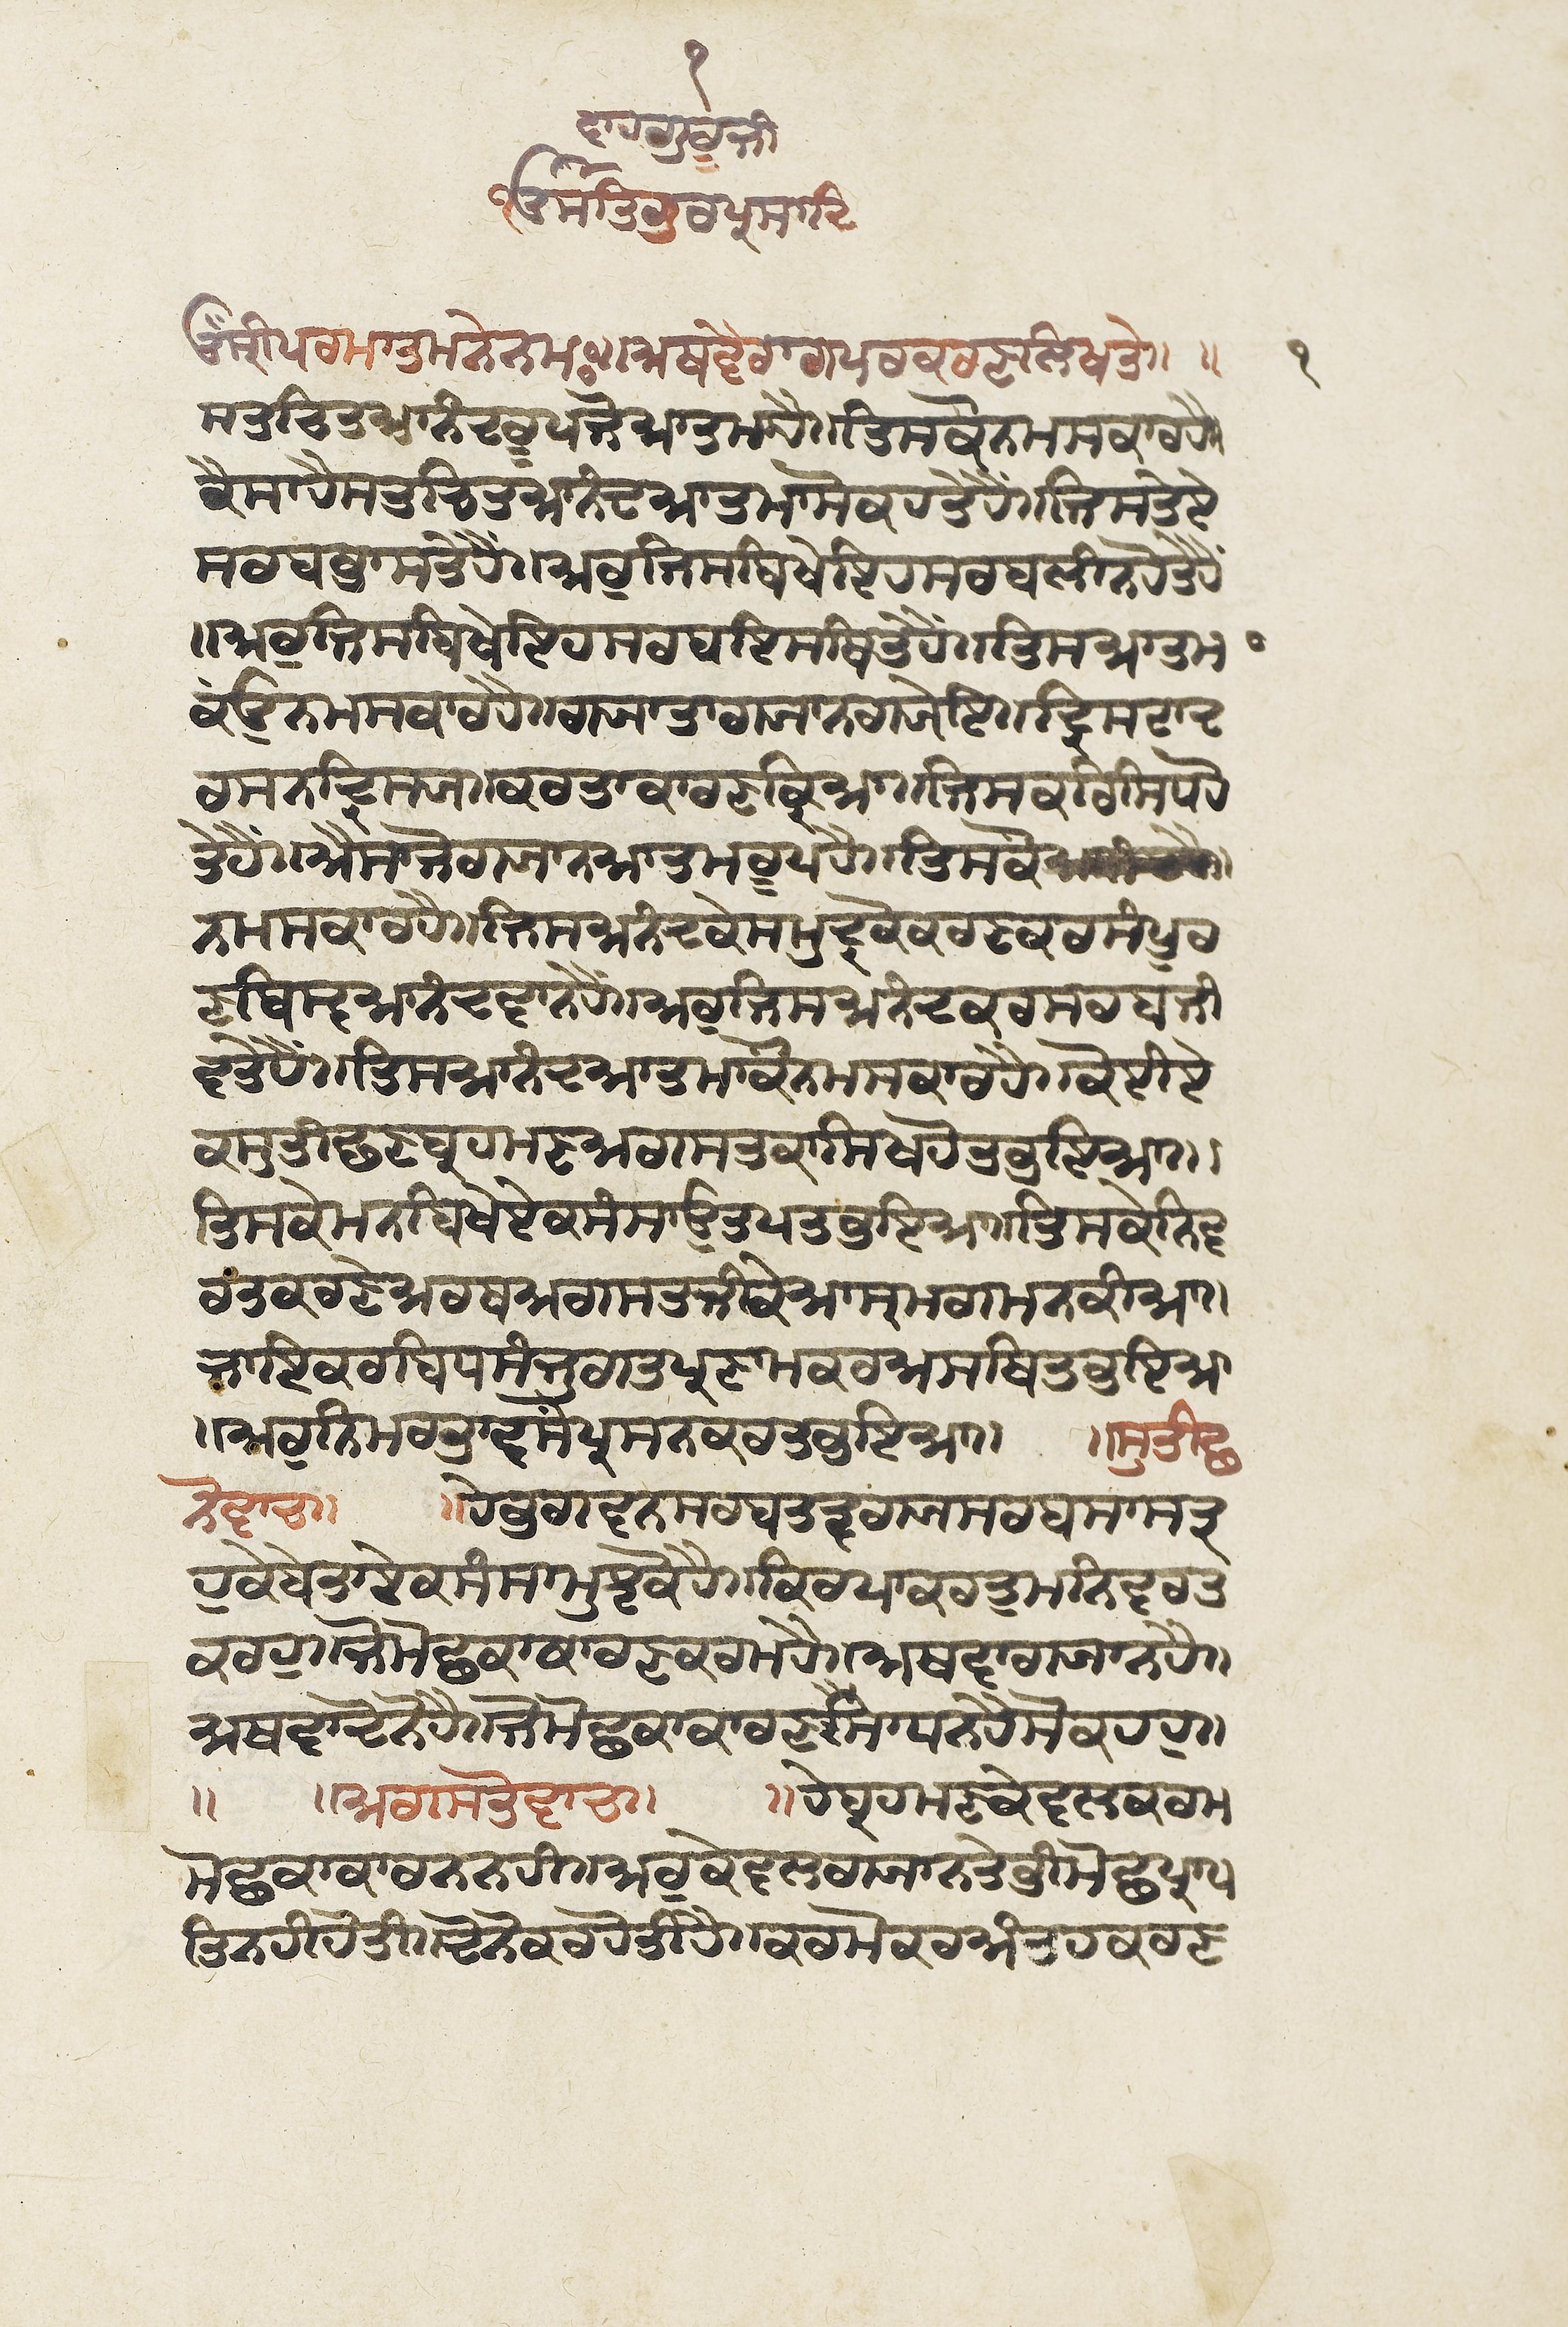 ੧
ਵਾਹਗੁਰੂਜੀ
ੴਸਤਿਗੁਰਪ੍ਰਸਾਦਿ
ਓਂਸ੍ਰੀਪਰਮਾਤਮਨੇਨਮਃ॥ਅਥਵੈਰਾਗਪਰਕਰਣਲਿਖਤੇ॥ ॥ ੧
ਸਤਚਿਤਆਨੰਦਰੂਪਜੋਆਤਮਾਹੈ॥ਤਿਸਕੌਨਮਸਕਾਰਹੈ॥
ਕੈਸਾਹੈਸਤਚਿਤਆਨੰਦਆਤਮਾਸੋਕਹਤੇਹੈਂ॥ਜਿਸਤੇਏ
ਸਰਬਭਾਸਤੇਹੈਂ॥ਅਰੁਜਿਸਬਿਖੇਇਹਸਰਬਲੀਨਹੋਤੇਹੈਂ
॥ਅਰੁਜਿਸਬਿਖੇਇਹਸਰਬਇਸਥਿਤੇਹੈਂ॥ਤਿਸਆਤਮ
ਕੰਉਨਮਸਕਾਰਹੈ॥ਗਯਾਤਾਗਯਾਨਗਯੇਇ॥ਦ੍ਰਿਸਟਾਦ
ਰਸਨਦ੍ਰਿਸਯ॥ਕਰਤਾਕਾਰਣਕ੍ਰਿਆ॥ਜਿਸਕਰਿਸਿਧਹੋ
ਤੇਹੈਂ॥ਐਸਾਜੋਗਯਾਨਆਤਮਰੂਪਹੈ॥ਤਿਸਕੌ
ਨਮਸਕਾਰਹੈ॥ਜਿਸਆਨੰਦਕੇਸਮੁਦ੍ਰਕੇਕਰਣਕਰਸੰਪੂਰ
ਣਬਿਸ੍ਵਆਨੰਦਵਾਨਹੈ॥ਅਰੁਜਿਸਅਨੰਦਕਰਸਰਬਜੀ
ਵਤੇਹੈਂ॥ਤਿਸਆਨੰਦਆਤਮਾਕੌਨਮਸਕਾਰਹੈ॥ਕੋਈਏ
ਕਸੁਤੀਛਣਬ੍ਰਹਮਣਅਗਸਤਕਾਸਿਖਹੋਤਭੁਇਆ॥
ਤਿਸਕੇਮਨਬਿਖੇਏਕਸੰਸਾਉਤਪਤਭੁਇਆ॥ਤਿਸਕੇਨਿਵ
ਰਤਕਰਣੇਅਰਥਅਗਸਤਜੀਕੇਆਸ੍ਰਮਗਮਨਕੀਆ॥
ਜਾਇਕਰਬਿਧਸੰਜੁਗਤਪ੍ਰਣਾਮਕਰਅਸਥਿਤਭੁਇਆ
॥ਅਰੁਨਿਮਰਤਾਵਸੋਂਪ੍ਰਸਨਕਰਤਭੁਇਆ॥ ॥ਸੁਤੀਛ
ਨੋਵਾਚ॥ ॥ਹੇਭਗਵਨਸਰਬਤਤ੍ਵਗਯਸਰਬਸਾਸਤ੍ਰ
ਹੁਕੇਬੇਤਾਏਕਸੰਸਾਮੁਝਕੋਹੈ॥ਕਿਰਪਾਕਰਤੁਮਨਿਵਰਤ
ਕਰਹੁ॥ਜੋਮੋਛਕਾਕਾਰਣਕਰਮਹੈ॥ਅਥਵਾਗਯਾਨਹੈ॥
ਅਥਵਾਦੋਨੋਹੈ॥ਜੋਮੋਛਕਾਕਾਰਣਸਾਧਨਹੈਸੋਕਹਹੁ॥
॥ ॥ਅਗਸਤੋਵਾਚ॥ ॥ਹੇਬ੍ਰਹਮਣਕੇਵਲਕਰਮ
ਮੋਛਕਾਕਾਰਨਨਹੀ॥ਅਰੁਕੇਵਲਗਯਾਨਤੇਭੀਮੋਛਪ੍ਰਾਪ
ਤਿਨਹੀਹੋਤੀ॥ਦੋਨੋਕਰਹੋਤੀਹੈ॥ਕਰਮੋਕਰਅੰਤਹਕਰਣ